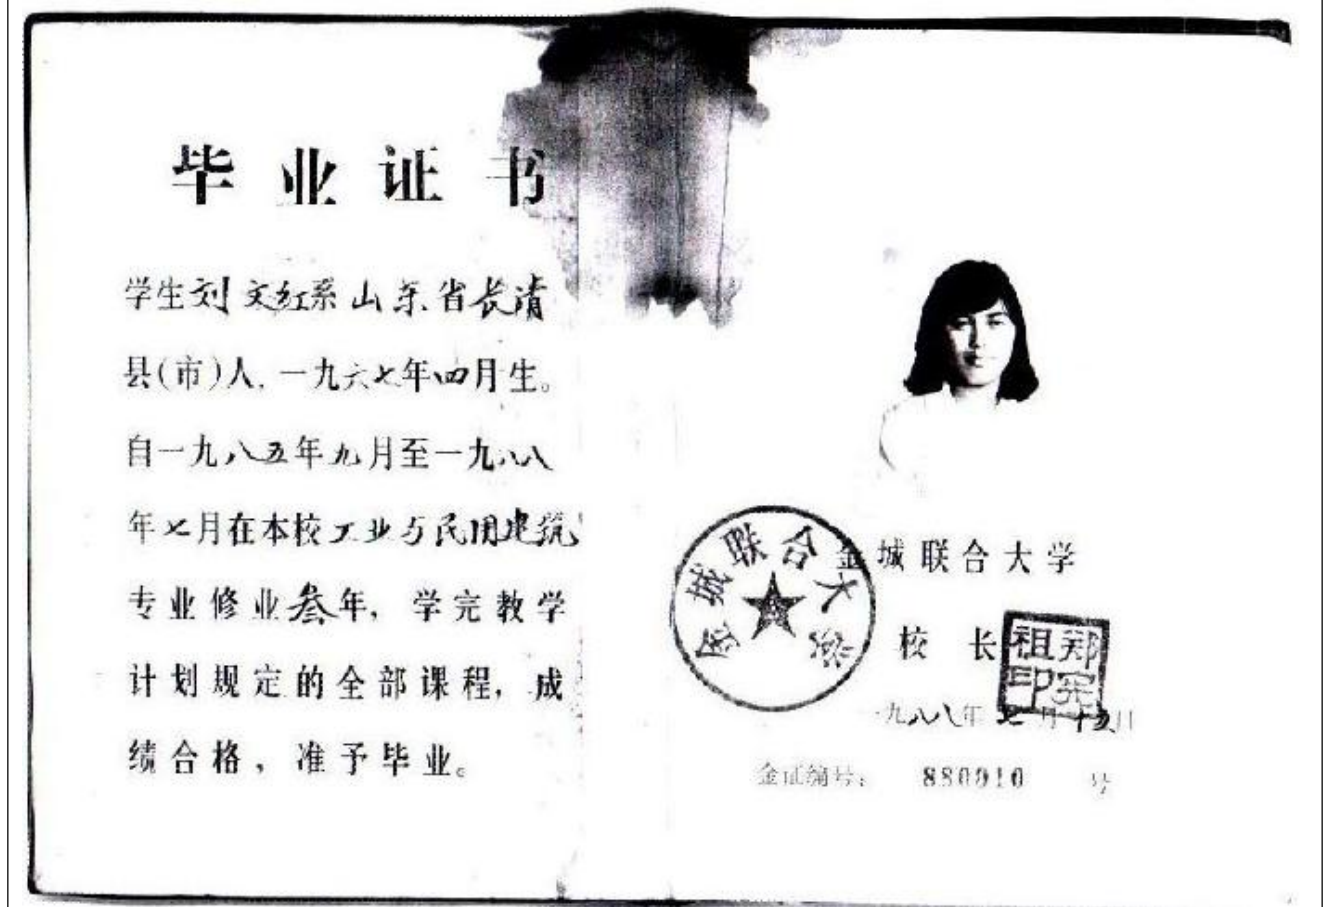 毕业证书
学生刘文红系山东省长清
县(市)人,一九六七年四月生。
自一九八五年九月至一九八八
年七月在本校工业与民用建筑
专业修业叁年,学完教学
计划规定的全部课程,成
绩合格,准予毕业。
金城联合大学
金城联合大学
校长
郑宪祖印
一九八八年七月十五日
金证编号: 880010 号